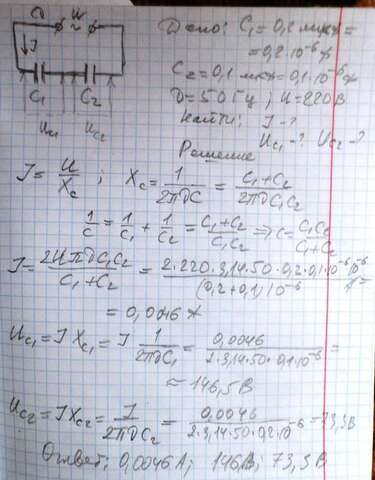 U
I
C₁ C₂
Uc₁ Uc₂
Дано: C₁ = 0,2 мкф =
= 0,2·10⁻⁶ ф
C₂ = 0,1 мкф = 0,1·10⁻⁶ ф
ν = 50 Гц; U = 220 В
Найти: I - ?
Uc₁ - ? Uc₂ - ?
Решение
I = U/Xc ; Xc = 1/2πνC = C₁+C₂/2πνC₁C₂
1/C = 1/C₁ + 1/C₂ = C₁+C₂/C₁C₂ ⇒ C = C₁C₂/C₁+C₂
I = 2UπνC₁C₂/C₁+C₂ = 2·220·3,14·50·0,2·0,1·10⁻⁶·10⁻⁶/(0,2+0,1)10⁻⁶ =
= 0,0046 A
Uc₁ = I Xc₁ = I 1/2πνC₁ = 0,0046/2·3,14·50·0,1·10⁻⁶ =
≈ 146,5 В
Uc₂ = I Xc₂ = I/2πνC₂ = 0,0046/2·3,14·50·0,2·10⁻⁶ = 73,3 В
Ответ: 0,0046 А; 146 В; 73,3 В